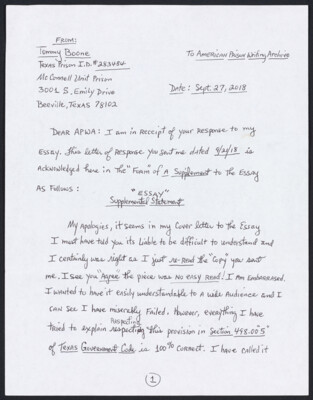 From:
Tommy Boone
To American Prison Writing Archive
Texas Prison I.D. # 283484
McConnell Unit Prison
3001 S. Emily Drive
Date: Sept. 27, 2018
Beeville, Texas 78102
Dear APWA: I am in receipt of your response to my
Essay. This letter of Response you sent me dated 9/20/18 is
acknowledged here in the "Form" of A Supplement to the Essay
As follows:
"ESSAY"
Supplemental Statement
My apologies, it seems in my cover letter to the Essay
I must have told you its liable to be difficult to understand and
I certainly was right as I just re-read the "copy" you sent
me. I see you "Agree" the piece was no easy read! I am embarassed.
I wanted to have it easily understandable to a wide Audience and I
can see I have miserably failed. However, everything I have
respecting
tried to explain respecting this provision in Section 498.005
of Texas Government Code is 100% correct. I have called it
1